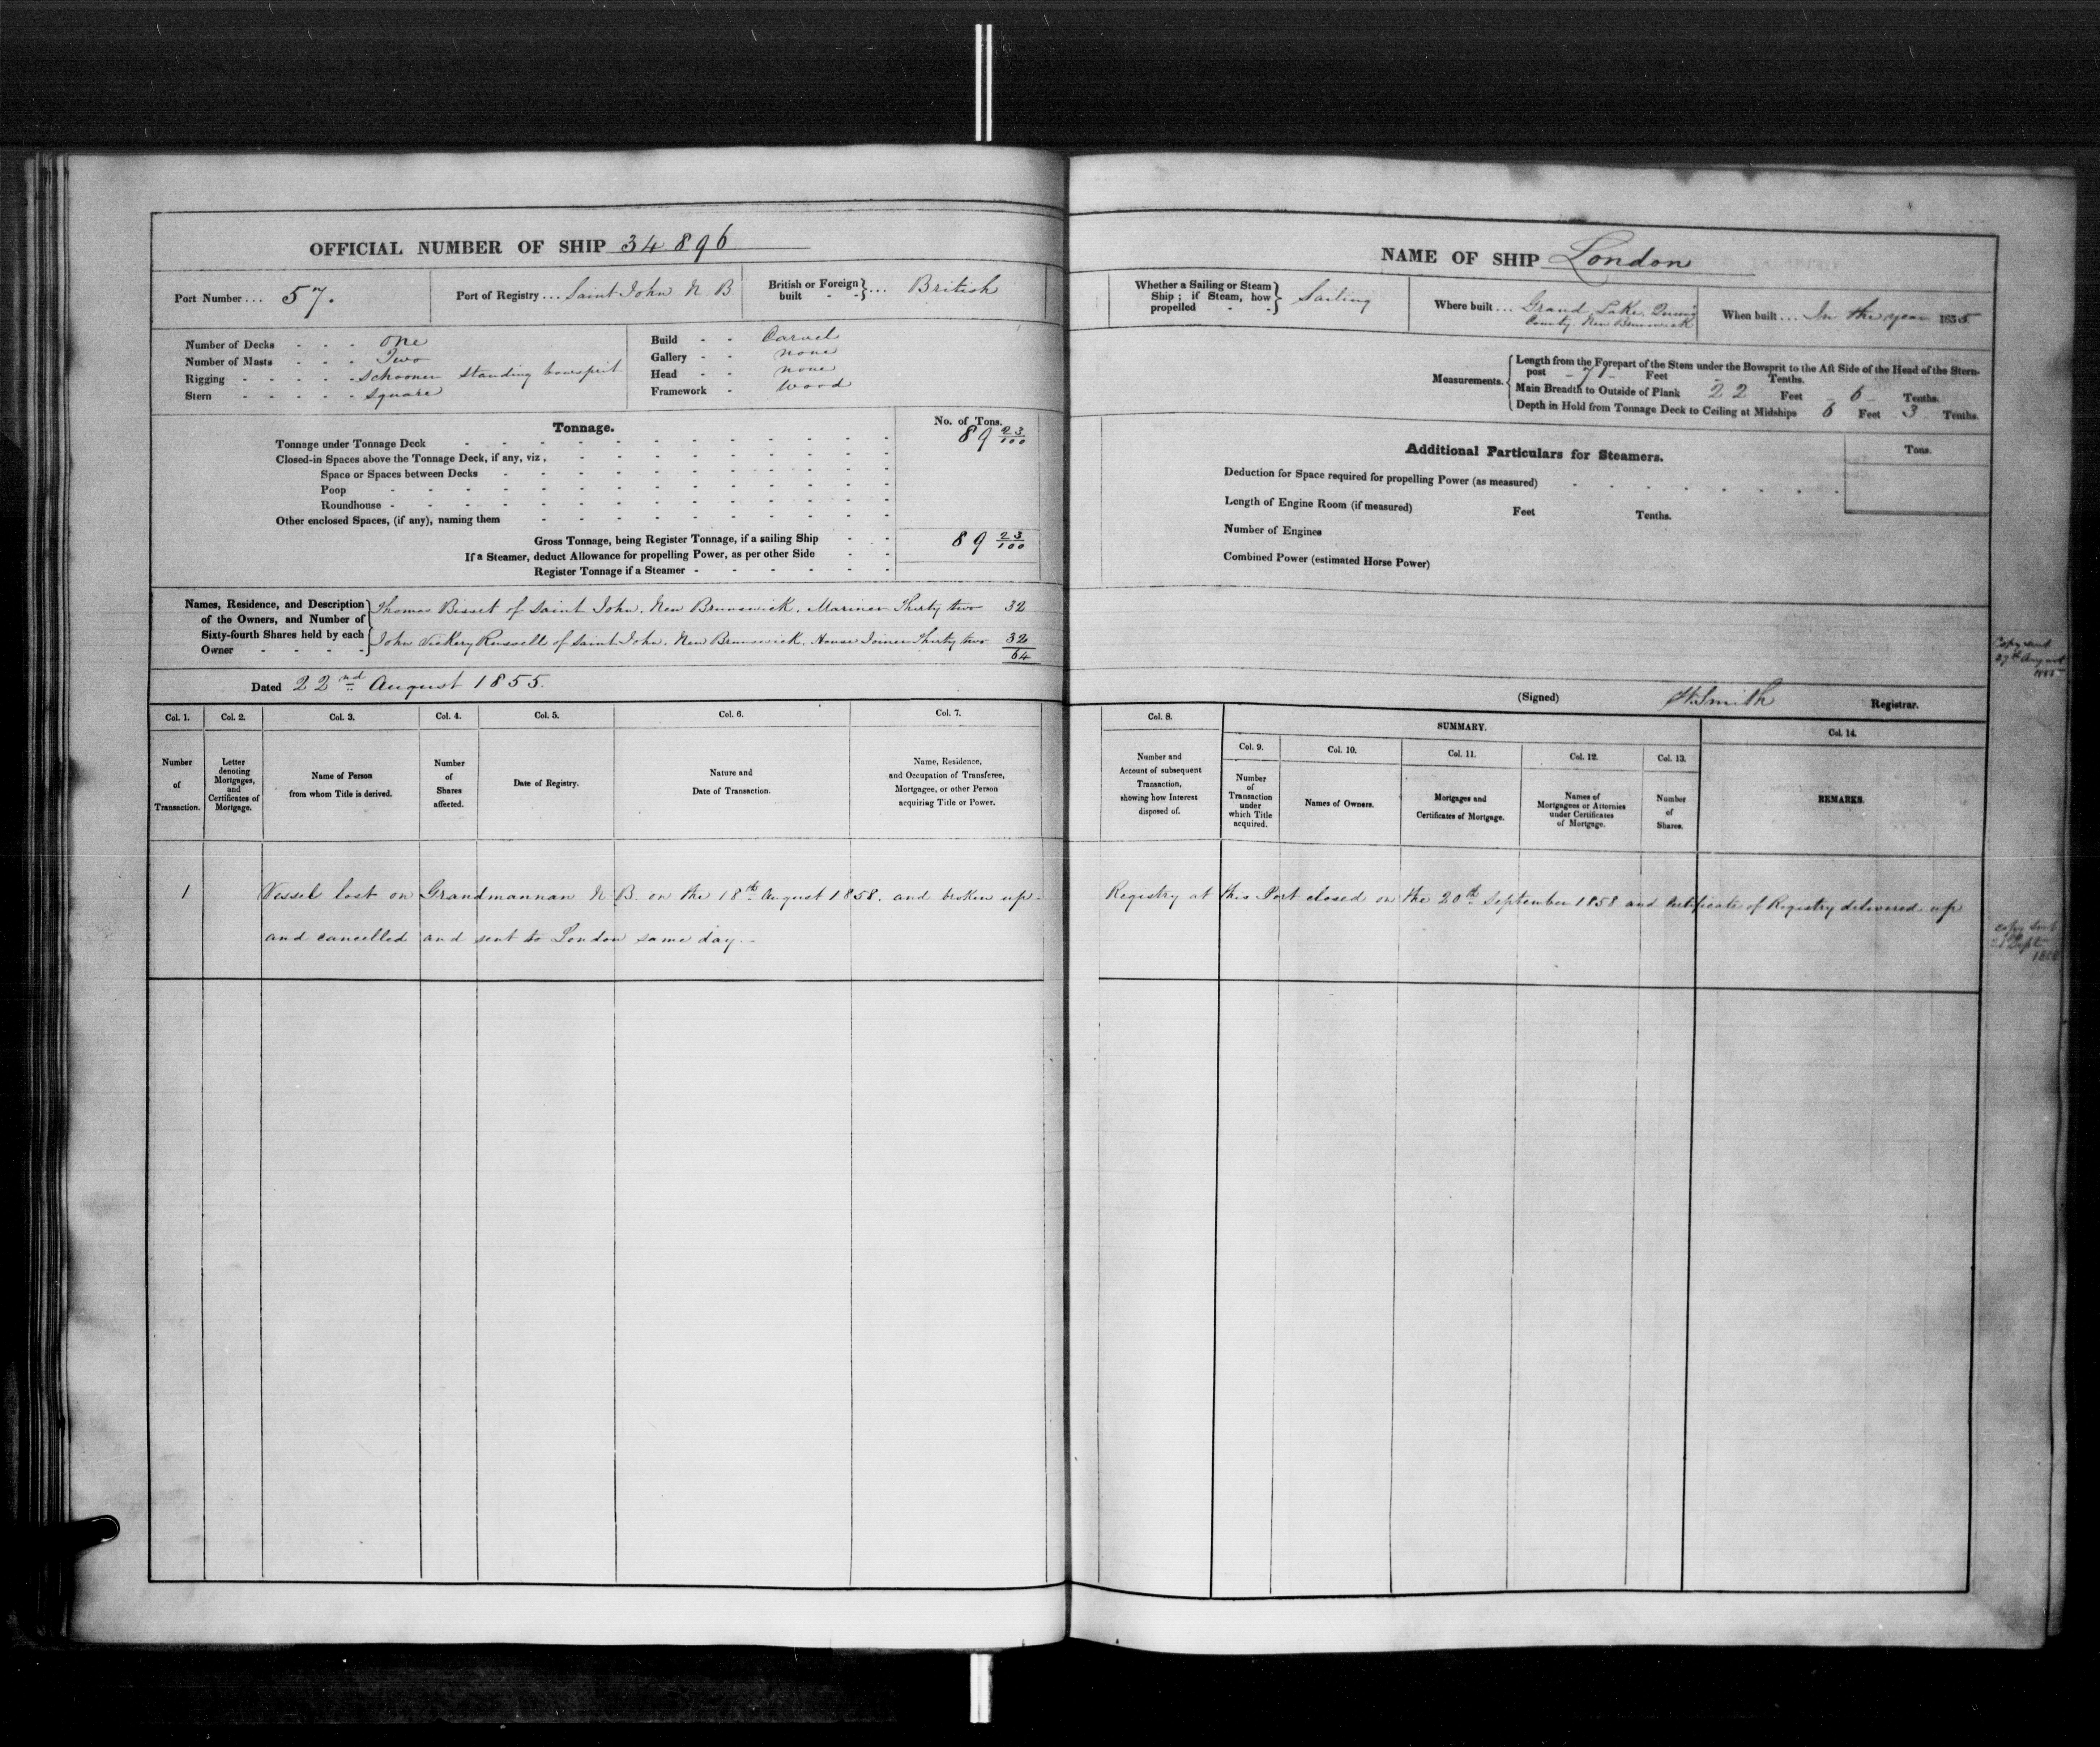 OFFICIAL NUMBER OF SHIP 34896
Port Number ... 57.
Port of Registry ... Saint John N. B.
British or Foreign built - - } ... British
Number of Decks - - - One
Number of Masts - - - Two
Rigging - - - - - Schooner standing bowsprit
Stern - - - - - Square
Build - - Carvel
Gallery - - none
Head - - none
Framework - Wood
Tonnage.
No. of Tons.
Tonnage under Tonnage Deck 89 23/100
Closed-in Spaces above the Tonnage Deck, if any, viz,
Space or Spaces between Decks
Poop
Roundhouse
Other enclosed Spaces, (if any), naming them
Gross Tonnage, being Register Tonnage, if a sailing Ship 89 23/100
If a Steamer, deduct Allowance for propelling Power, as per other Side
Register Tonnage if a Steamer
Names, Residence, and Description of the Owners, and Number of Sixty-fourth Shares held by each Owner
Thomas Bisset of Saint John, New Brunswick, Mariner Thirty two 32
John Vickery Russell of Saint John, New Brunswick, House Joiner Thirty two 32
64
Dated 22nd August 1855.
Col. 1.
Col. 2.
Col. 3.
Col. 4.
Col. 5.
Col. 6.
Col. 7.
Number of Transaction.
Letter denoting Mortgages, and Certificates of Mortgage.
Name of Person from whom Title is derived.
Number of Shares affected.
Date of Registry.
Nature and Date of Transaction.
Name, Residence, and Occupation of Transferee, Mortgagee, or other Person acquiring Title or Power.
1 Vessel lost on Grandmannan N B. on the 18th August 1858. and broken up.
and cancelled and sent to London same day.
NAME OF SHIP London
Whether a Sailing or Steam Ship; if Steam, how propelled - - } Sailing
Where built ... Grand Lake, Queens County, New Brunswick
When built ... In the year 1855.
Measurements.
Length from the Forepart of the Stem under the Bowsprit to the Aft Side of the Head of the Stern-
post Feet - Tenths.
Main Breadth to Outside of Plank 22 Feet - 6 - Tenths.
Depth in Hold from Tonnage Deck to Ceiling at Midships 6 Feet 3 Tenths.
Additional Particulars for Steamers.
Tons.
Deduction for Space required for propelling Power (as measured)
Length of Engine Room (if measured) Feet Tenths.
Number of Engines
Combined Power (estimated Horse Power)
Copy sent
27th August
1855
(Signed) W Smith Registrar.
Col. 8.
SUMMARY.
Col. 9.
Col. 10.
Col. 11.
Col. 12.
Col. 13.
Col. 14.
Number and Account of subsequent Transaction, showing how Interest disposed of.
Number of Transaction under which Title acquired.
Names of Owners.
Mortgages and Certificates of Mortgage.
Names of Mortgagees or Attornies under Certificates of Mortgage.
Number of Shares.
REMARKS.
Registry at this Port closed on the 20th September 1858 and Certificate of Registry delivered up
Copy sent
Sept